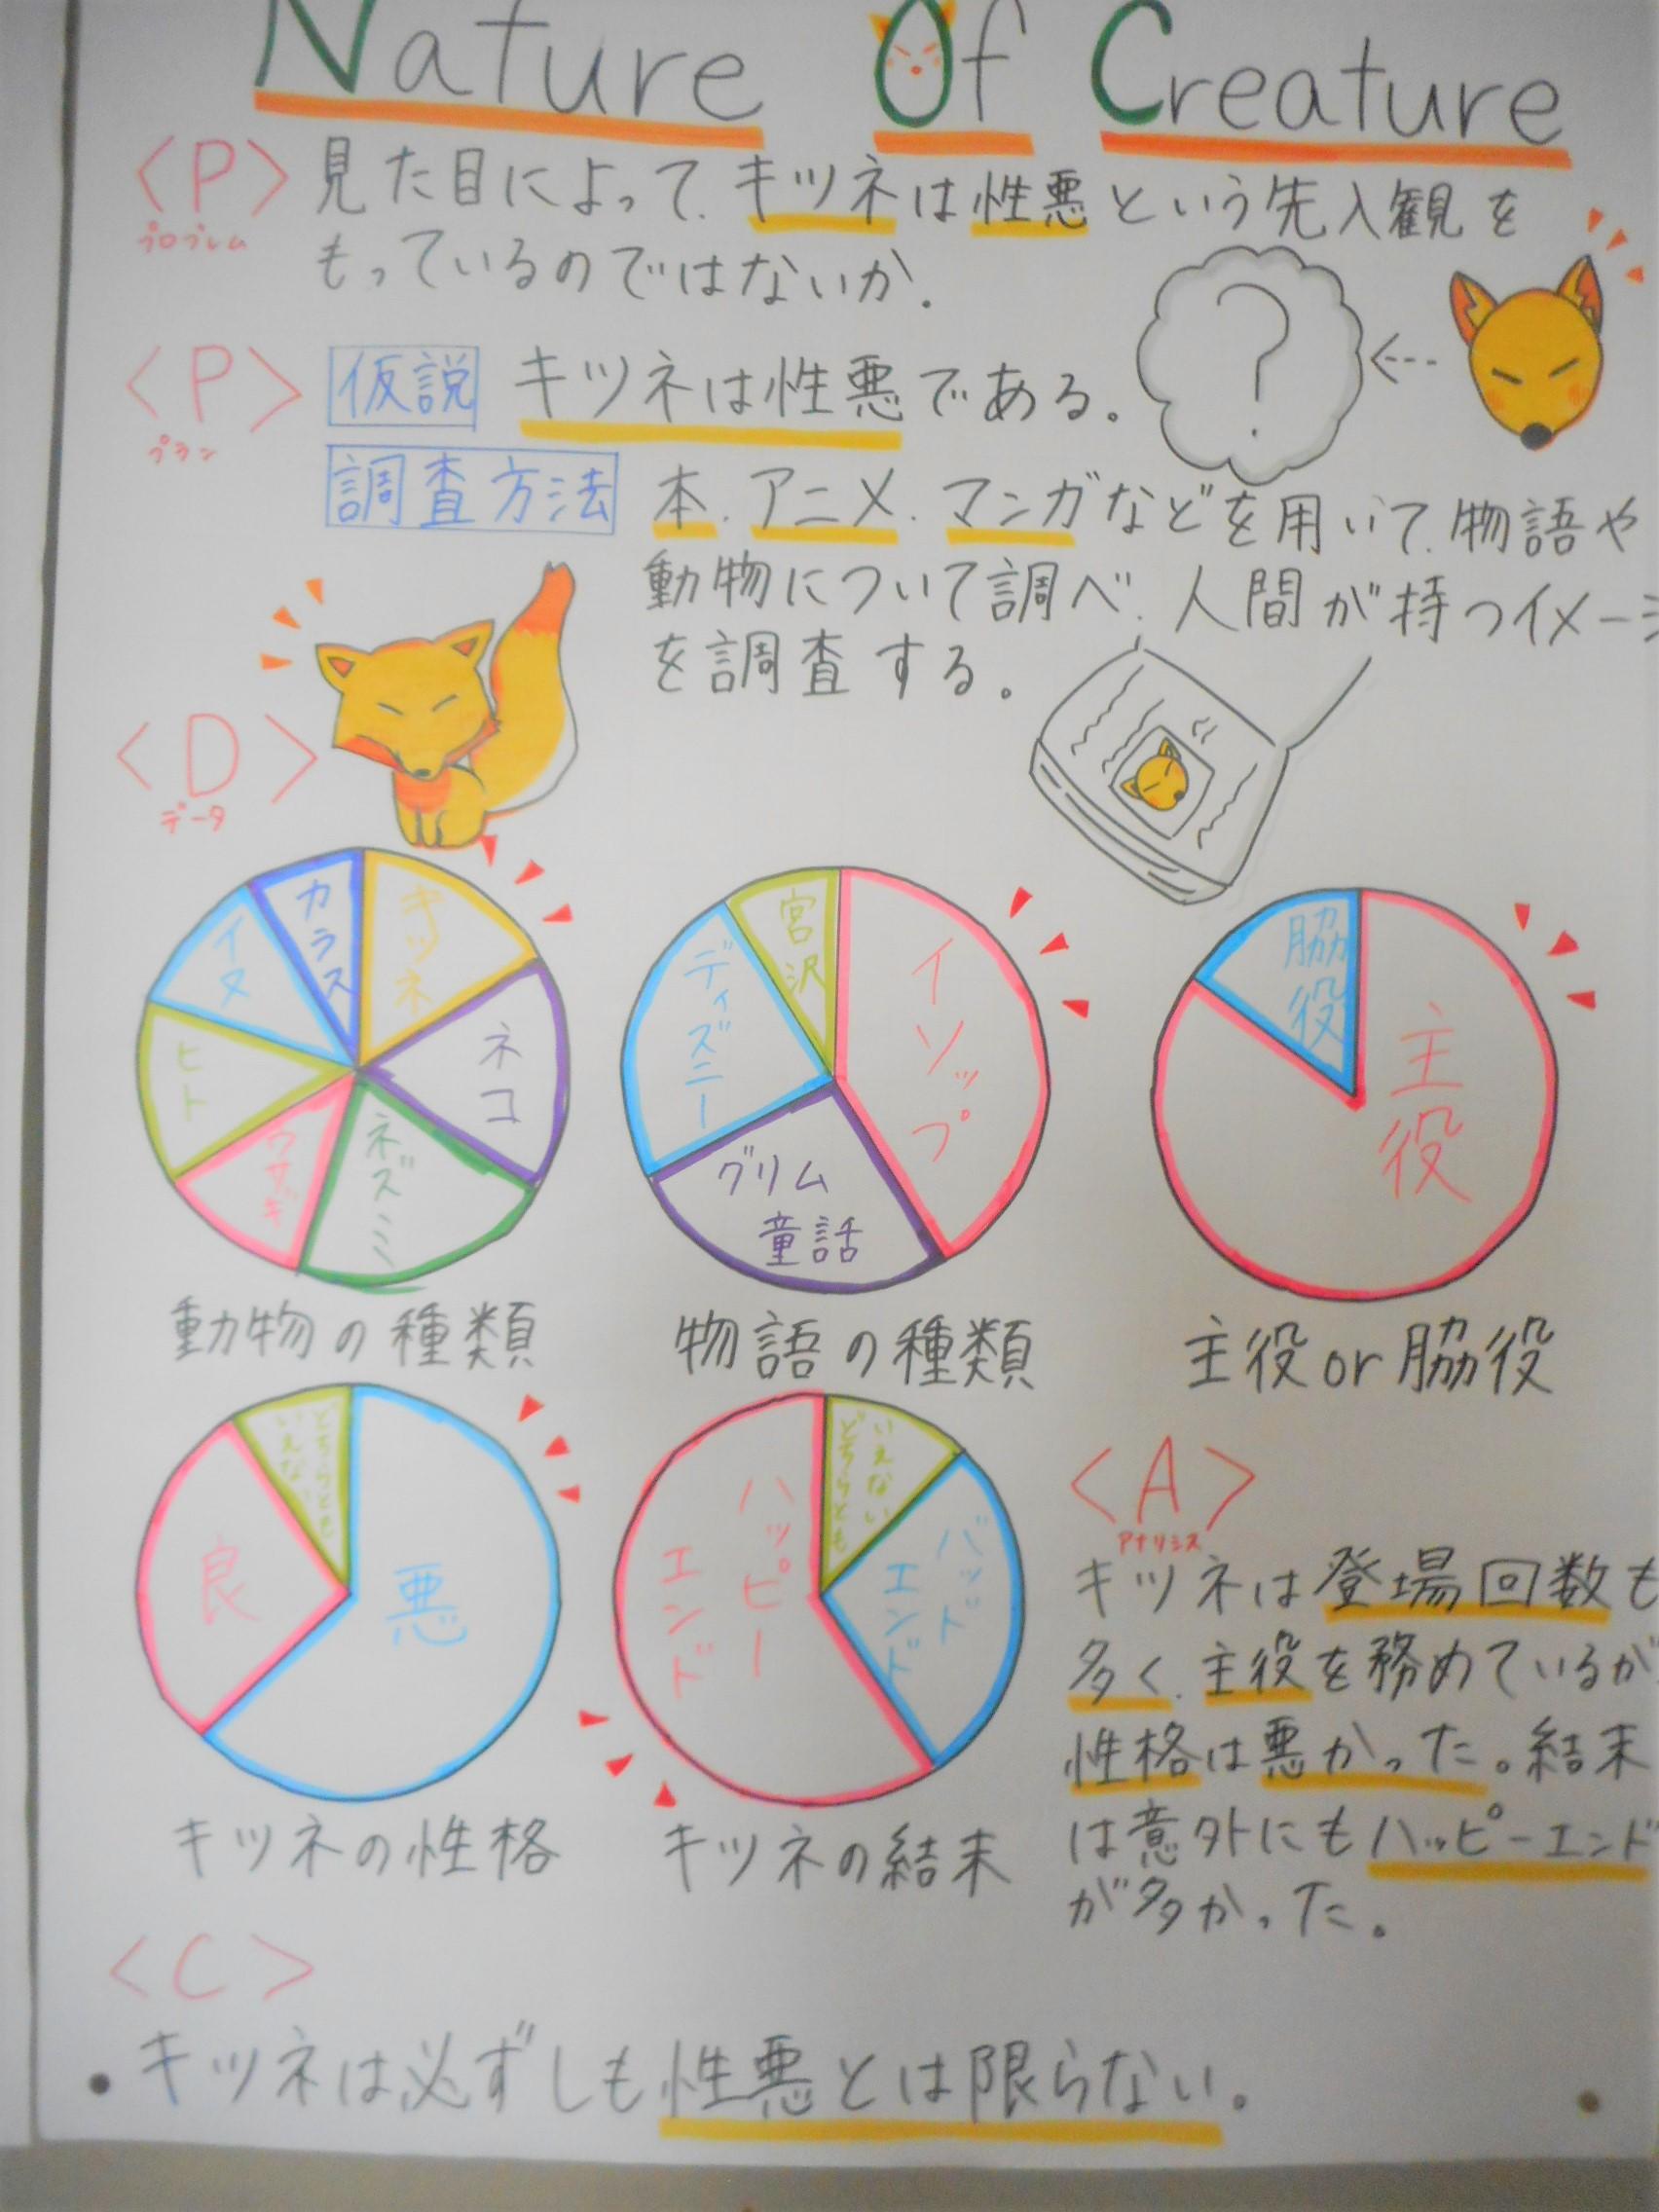 Nature Of Creature
<P> 見た目によって、キツネは性悪という先入観を
プロブレム
もっているのではないか.
<P> 仮説 キツネは性悪である。
プラン
?
調査方法 本、アニメ、マンガなどを用いて、物語や
動物について調べ、人間が持つイメージ
を調査する。
<D>
データ
キツネ
ネコ
ネズミ
ウサギ
ヒト
イヌ
カラス
動物の種類
イソップ
グリム
童話
ディズニー
宮沢
物語の種類
主役
脇役
主役or脇役
悪
良
どちらとも
いえない
キツネの性格
いえない
どちらとも
バッド
エンド
ハッピー
エンド
キツネの結末
<A>
アナリシス
キツネは登場回数も
多く、主役を務めているが
性格は悪かった。結末
は意外にもハッピーエンド
が多かった。
<C>
キツネは必ずしも性悪とは限らない。